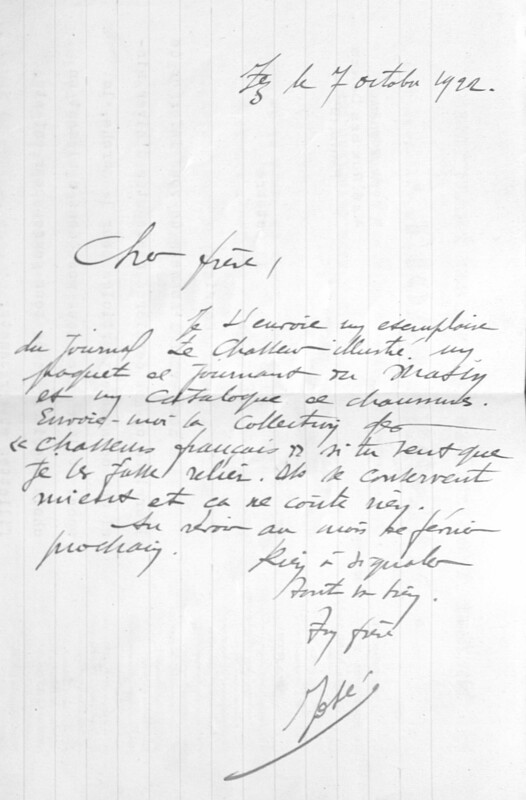 Fez le 7 octobre 1922.
Cher frère,
Je t'envoie un exemplaire
du Journal Le Chasseur illustré un
paquet de journaux du Matin
et un catalogue de chaussures.
Envoie-moi la collection des
« Chasseurs français » si tu veux que
je les fasse relier. Ils se conservent
mieux et ça ne coûte rien.
Au revoir au mois de février
prochain. Rien à signaler
Tout va bien.
Ton frère
José